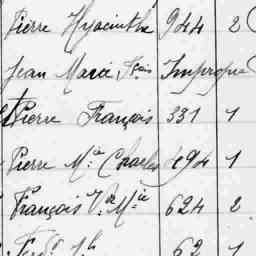 Pierre Hyacinthe 944 2
Jean Marie, Fçois Impropre
Pierre François 331 1
Pierre Mie Charles 694 1
François Vor Mie 624 2
62 1